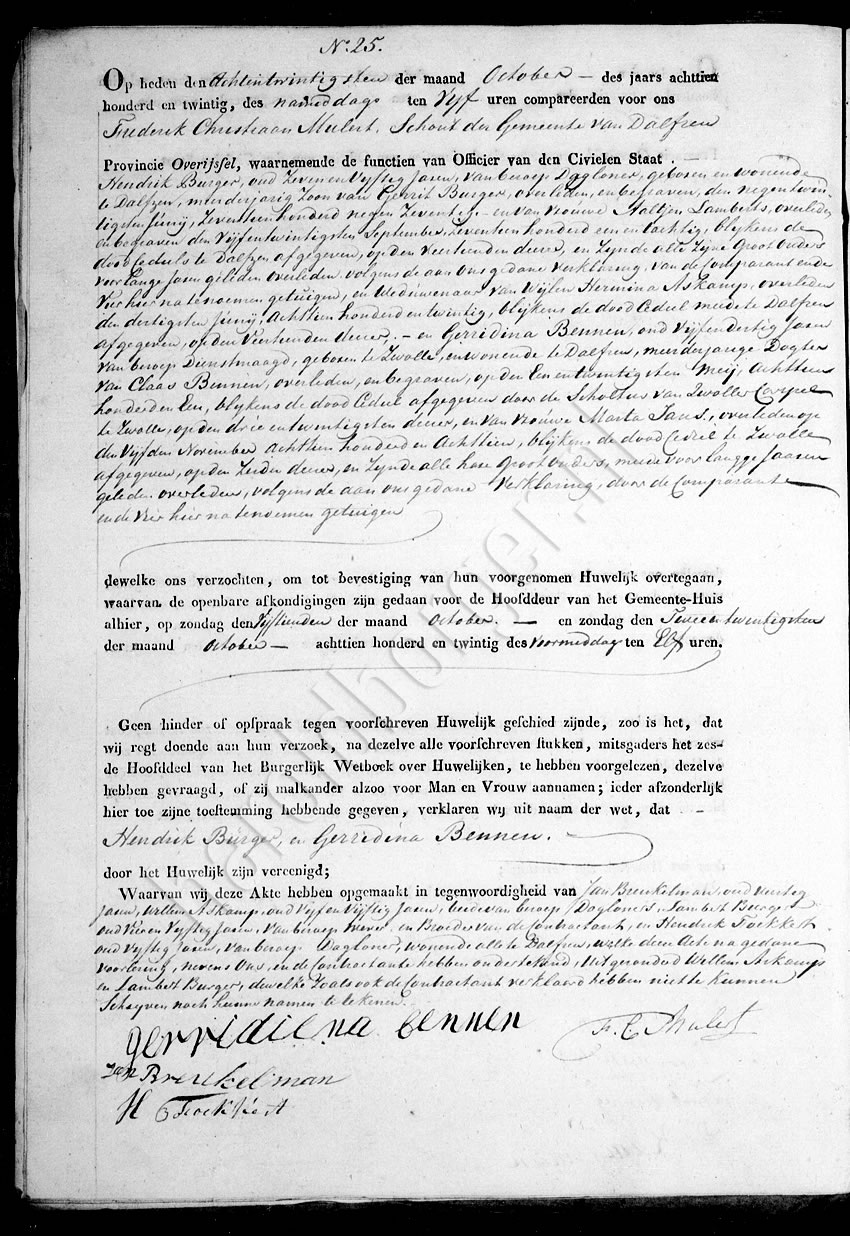 N.o 25.
Op heden den Achtentwintigsten der maand October – des jaars achttien
honderd en twintig, des namiddags ten Vyf uren compareerden voor ons
Frederik Christiaan Mulert, Schout der Gemeente van Dalfsen
Provincie Overijssel, waarnemende de functien van Officier van den Civielen Staat. –
Hendrik Burger, oud Zeven en Vyftig Jaren, van beroep Dagloner, geboren en wonende
te Dalfzen, meerderjarig Zoon van Gerrit Burger, overleden, en begraven, den negentwin-
tigsten Junij, Zeventien honderd negen Zeventig, – en van Vrouwe Aaltjen Lamberts, overleden
en begraven den Vyfentwintigsten September, Zeventien honderd een en tachtig, blykens de
dood Ceduls te Dalfzen afgegeven, op den Veertienden dezer, en Zynde alle Zyne Groot Ouders
voor lange Jaren geleden overleden, volgens de aan ons gedane verklaring, van de Comparant en de
Vier hier na tenoemen getuigen, en Weduwenaar van Wijlen Hermina Askamp, overleden
den dertigsten Junij, Achttien honderd en twintig, blykens de dood Cedul mede te Dalfsen
afgegeven, op den Veertienden dezer, – en Gerridina Bennen, oud Vyfendertig Jaren
van beroep Dienstmaagd, geboren te Zwolle, en wonende te Dalfsen, meerderjarige Dogter
van Claas Bennen, overleden, en begraven, op den Een entwintigsten Meij, Achttien
honderd en Een, blykens de dood Cedul afgegeven door de Scholtus van Zwoller Carspel
te Zwolle, op den drie entwintigsten dezer, en van Vrouwe Marta Jans, overleden op
den Vyfden November achttien honderd en Achttien, blykens de dood Cedul te Zwolle
afgegeven, op den dezer, en Zynde alle hare Groot Ouders, mede voor langge Jaaren
geleden overleden, volgens de aan ons gedane Verklaring, door de Comparante
en de Vier hier na tenoemen getuigen
dewelke ons verzochten, om tot bevestiging van hun voorgenomen Huwelijk overtegaan,
waarvan de openbare afkondigingen zijn gedaan voor de Hoofddeur van het Gemeente-Huis
alhier, op zondag den Vyftienden der maand October. – en zondag den Tweeentwentigsten
der maand October – achttien honderd en twintig des Voormeddag ten Elf uren.
Geen hinder of opspraak tegen voorschreven Huwelijk geschied zijnde, zoo is het, dat
wij regt doende aan hun verzoek, na dezelve alle voorschreven stukken, mitsgaders het zes-
de Hoofddeel van het Burgerlijk Wetboek over Huwelijken, te hebben voorgelezen, dezelve
hebben gevraagd, of zij malkander alzoo voor Man en Vrouw aannamen; ieder afzonderlijk
hier toe zijne toestemming hebbende gegeven, verklaren wij uit naam der wet, dat –
Hendrik Burger, en Gerridina Bennen.
door het Huwelijk zijn vereenigd;
Waarvan wij deze Akte hebben opgemaakt in tegenwoordigheid van Jan Breukelman, oud Veertig
Jaren, Willem Askamp, oud Vyf en Vyftig Jaren, beide van beroep Dagloners, Lambert Burger
oud Vier en Vyftig Jaren, van beroep Wever, en Broeder van de Contractant, en Hendrik Foekkert
oud Vyftig Jaren, van beroep Dagloner, wonende alle te Dalfsen, welke deze Acte na gedane
voorlezing, nevens ons, en de Contractante hebben ondertekend, Uitgezonderd Willem Askamp
en Lambert Burger, dewelke Zoals ook de Contractant verklaard hebben niet te Kunnen
Schryven noch hunne namen te tekenen.
gerridiena bennen
F. C. Mulert
Jan Breukelman
H Foekkert
haroldborger.nl